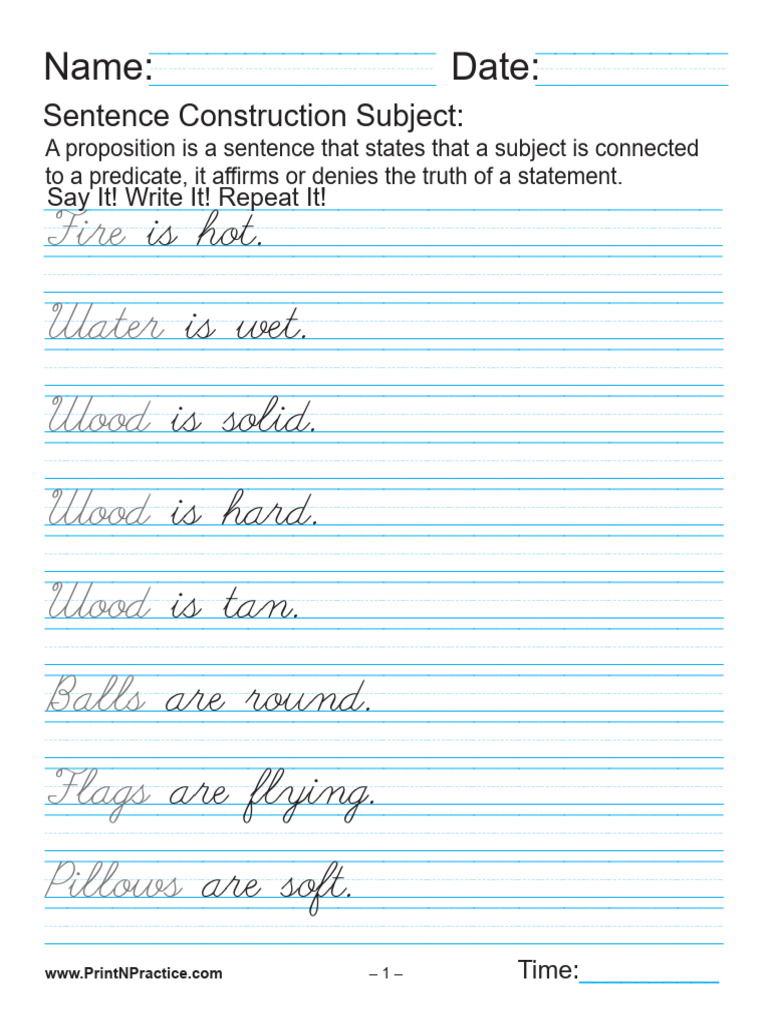 Name: Date:
Sentence Construction Subject:
A proposition is a sentence that states that a subject is connected
to a predicate, it affirms or denies the truth of a statement.
Say It! Write It! Repeat It!
Fire is hot.
Water is wet.
Wood is solid.
Wood is hard.
Wood is tan.
Balls are round.
Flags are flying.
Pillows are soft.
www.PrintNPractice.com – 1 – Time: